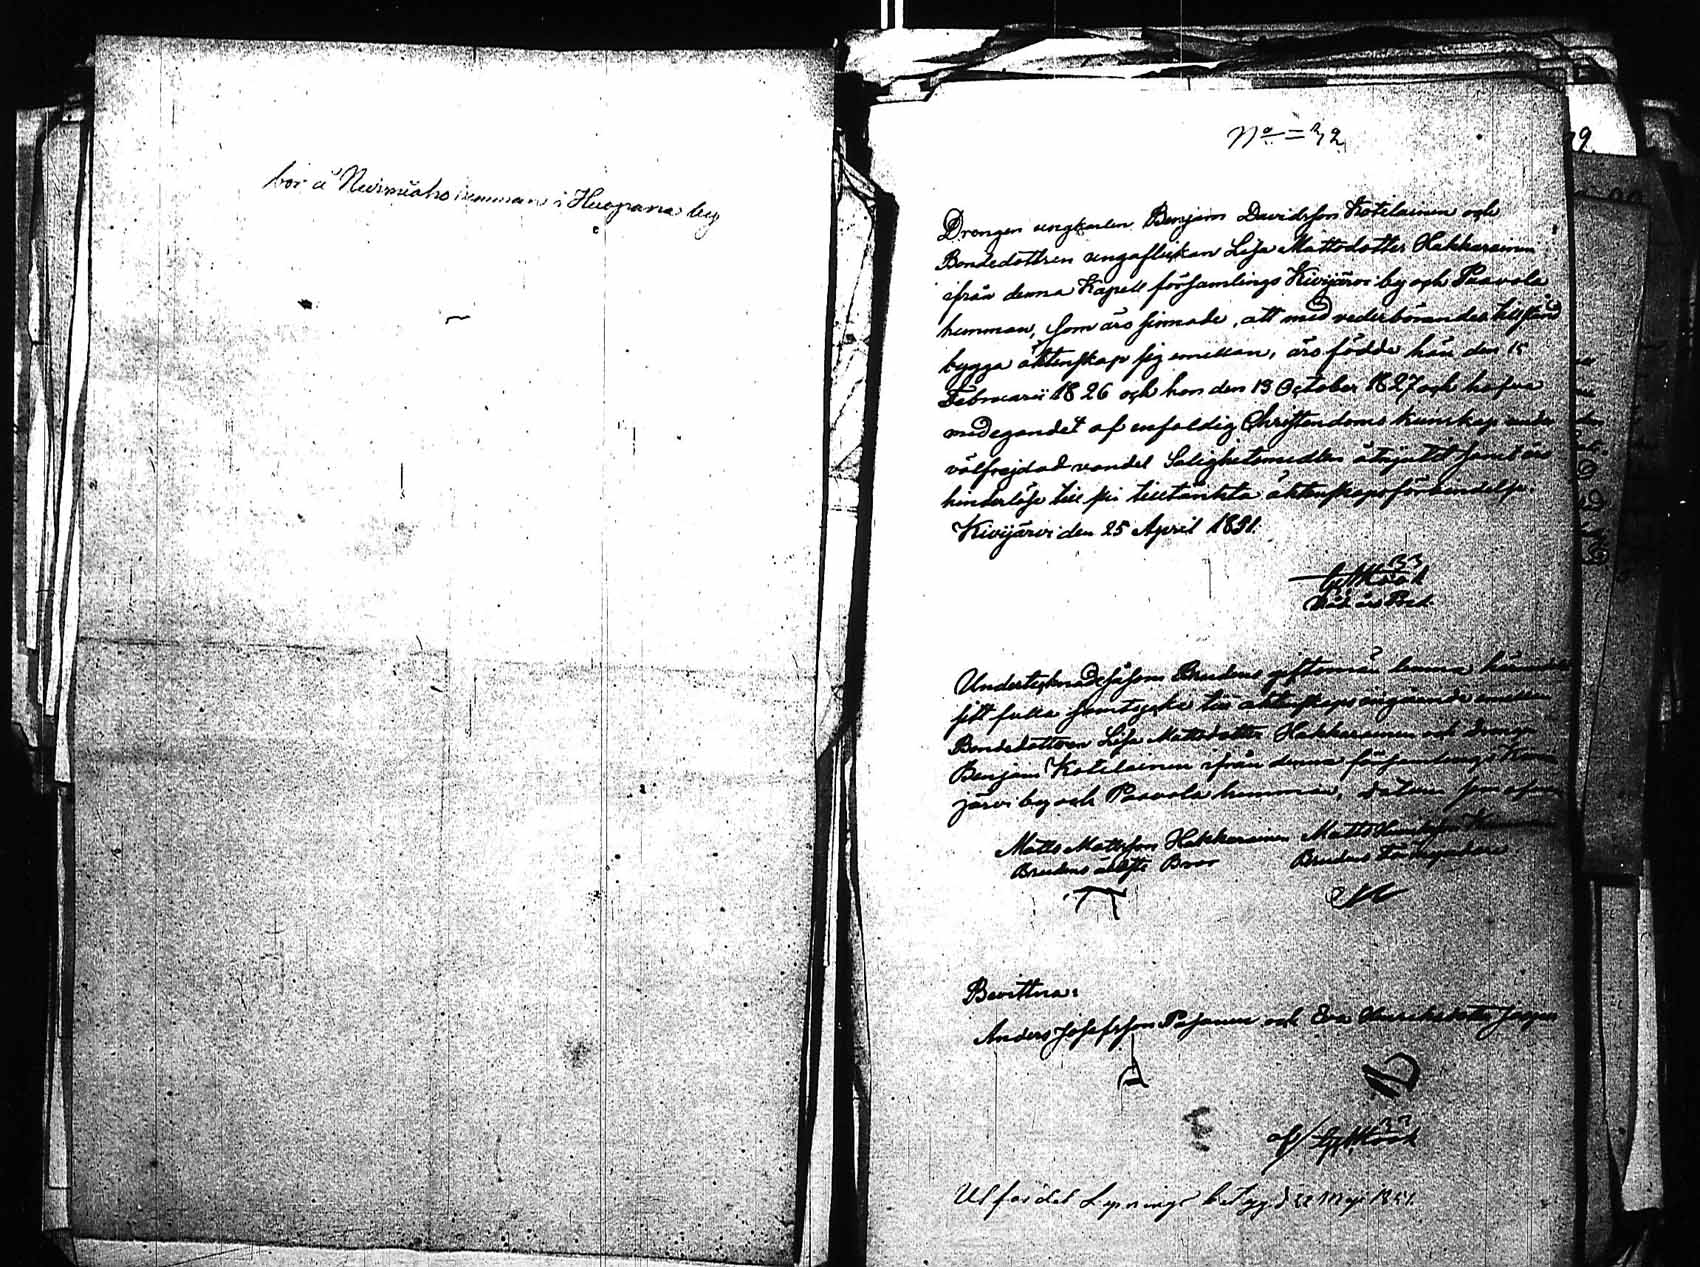 bor å Nurmiaho hemman i Huopana by
No = 32
Drängen ungkarlen Benjam Davidsson Kotilainen och
Bondedottren ungaflickan Lisa Mattsdotter Hakkarainen
ifrån denna Kapell församlings Kivijärvi by och Paavola
hemman, som äro sinnade, att med vederbörandes tillstånd
bygga äktenskap sig emellan, äro födde han den 15
Februarii 1826 och hon den 13 October 1827 och hafva
med egandet af enfaldig Christendoms kunskap under
välfrejdad vandel Salighetsmedlen åtnjutit samt äro
hinderlöse till sin tilltänkta äktenskaps förbindelse.
Kivijärvi den 25 April 1851.
Undertecknade såsom Brudens giftomän lemna härmed
sitt fulla samtycke till äktenskaps ingående emellan
Bondedottren Lisa Mattsdotter Hakkarainen och Dräng
Benjam Kotilainen ifrån denna församlings Kivi
järvi by och Paavola hemman, datum som ofvan
Matts Mattsson Hakkarainen Matts Henriksson
Brudens äldste Bror Brudens
Bevittna:
Anders Josefsson och Eva Henriksdotter
af
Utfärdat Lysnings betyg d 22 Maji 1851.